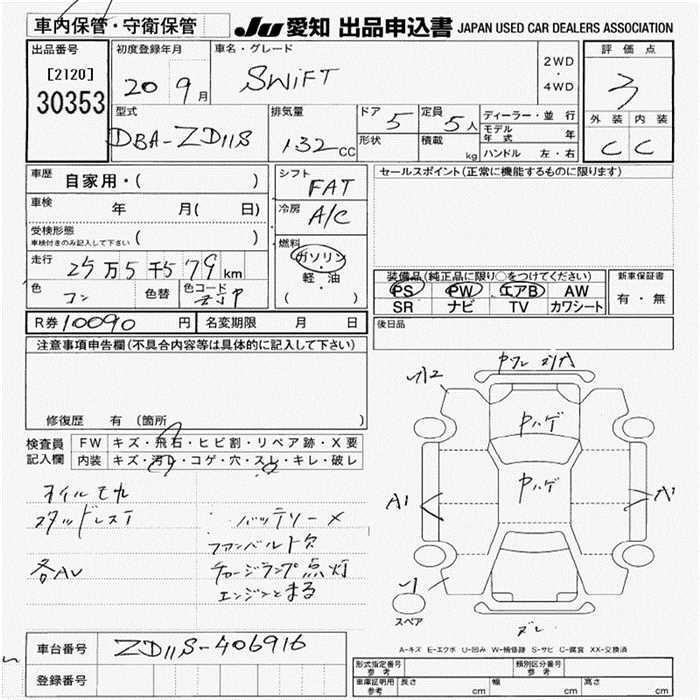 車内保管・守衛保管
JU 愛知 出品申込書 JAPAN USED CAR DEALERS ASSOCIATION
出品番号
[2120]
30353
初度登録年月
20 9月
車名・グレード
SWIFT
2WD
・
4WD
評価点
3
外装 内装
C C
型式
DBA-ZD11S
排気量
1.32 CC
ドア 5
形状
定員 5人
積載 kg
ディーラー・並行
モデル年式 年
ハンドル 左・右
車歴 自家用・( )
車検 年 月( 日)
受検形態
車検付きのみ記入して下さい ( )
走行 25万5千579km
色 コン 色替 色コード ZJP
シフト FAT
冷房 A/C
燃料
ガソリン
・
軽・油
( )
セールスポイント(正常に機能するものに限ります)
装備品(純正品に限り○をつけてください)
PS PW エアB AW
SR ナビ TV カワシート
新車保証書
有・無
R券 10090 円 名変期限 月 日
後日品
注意事項申告欄(不具合内容等は具体的に記入して下さい)
修復歴 有 (箇所 )
検査員記入欄
FW キズ・飛石・ヒビ割・リペア跡・X要
内装 キズ・汚レ・コゲ・穴・スレ・キレ・破レ
オイルモレ
スタッドレス バッテリーメ
ファンベルト欠
各AU チャージランプ点灯
エンジンとまる
ヤハゲ
ヤハゲ
A1
スペア
ズレ
A-キズ E-エクボ U-凹み W-補修跡 S-サビ C-腐食 XX-交換済
車台番号 ZD11S-406916
登録番号
形式指定番号 参考
類別区分番号 参考
車庫証明用 参考 長さ cm 幅 cm 高さ cm